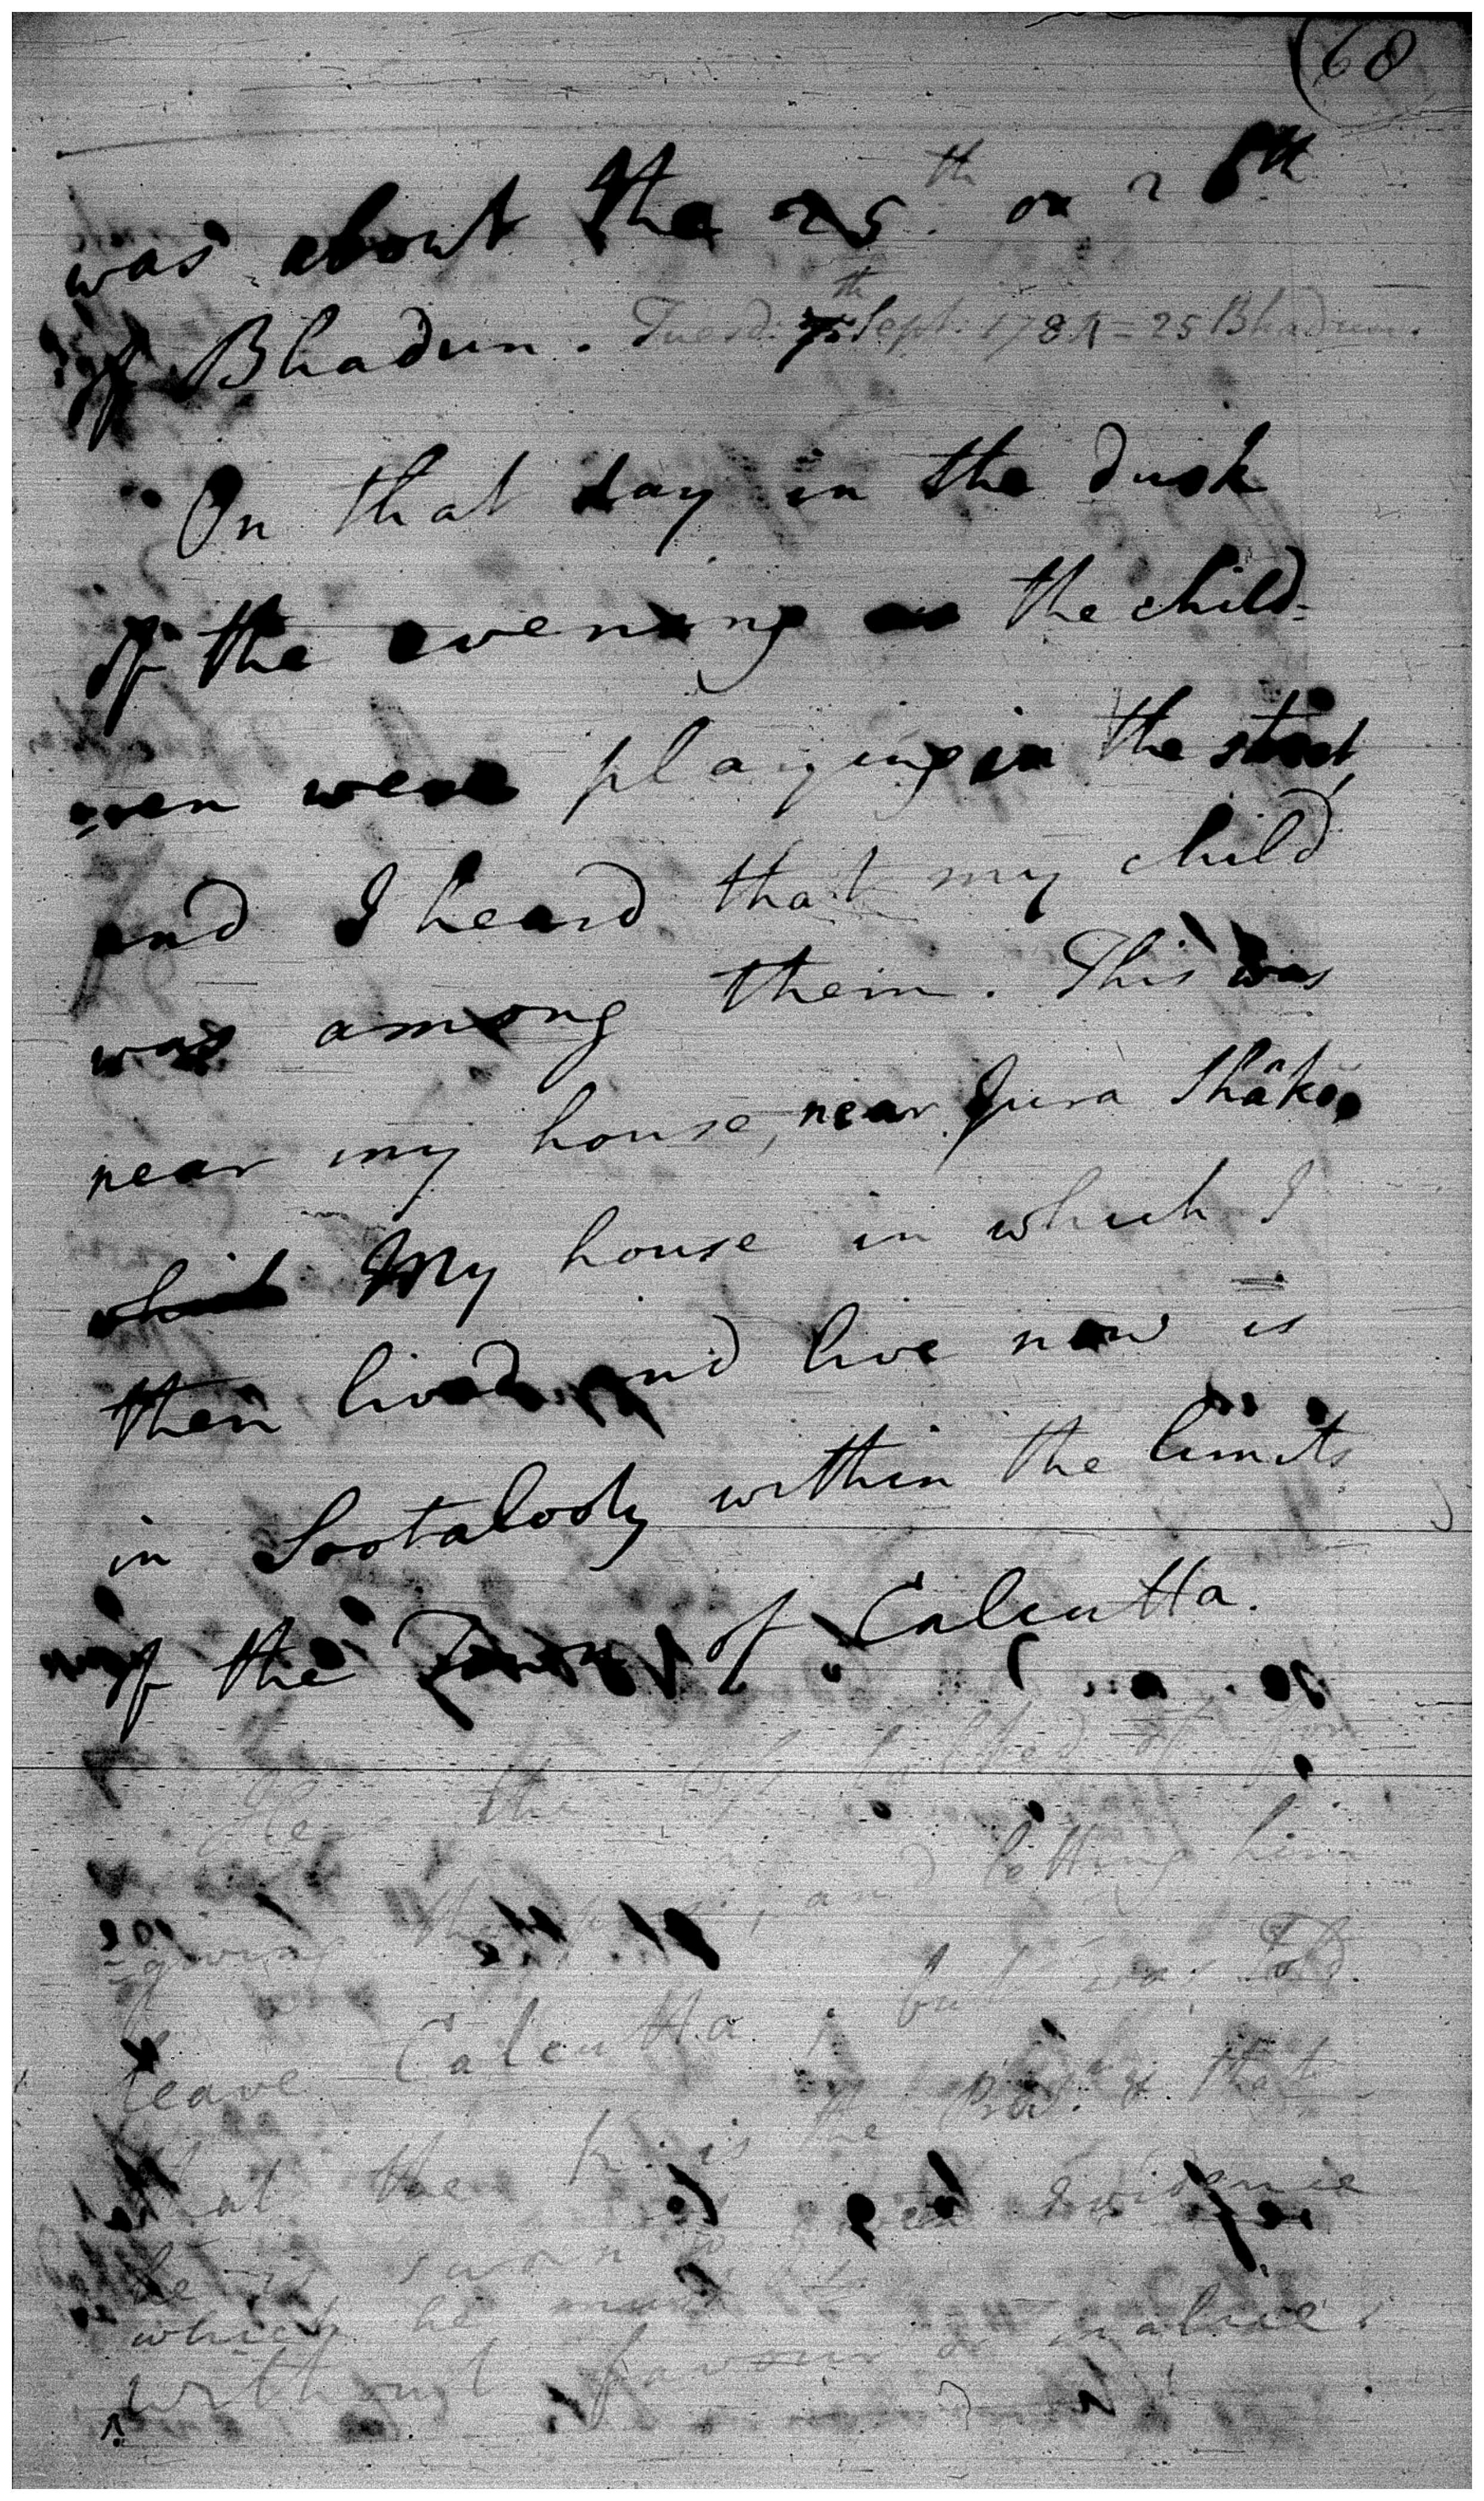 (68
was about the 25th. or 26th
of Bhadun. Tuesd. 7th Sept. 178 = 25 Bhadun.
On that day in the dusk
of the evening the child-
ren were playing in the street,
and I heard that my child
was among them. This was
near my house, near Jura Shâko,
My house in which I
then lived and live now is
in Sootalooty within the limits
of the Town of Calcutta.
He the
giving and letting him
leave Calcutta; but was told
that then he is the that
he is sworn evidence
which he must
without favour or malice.